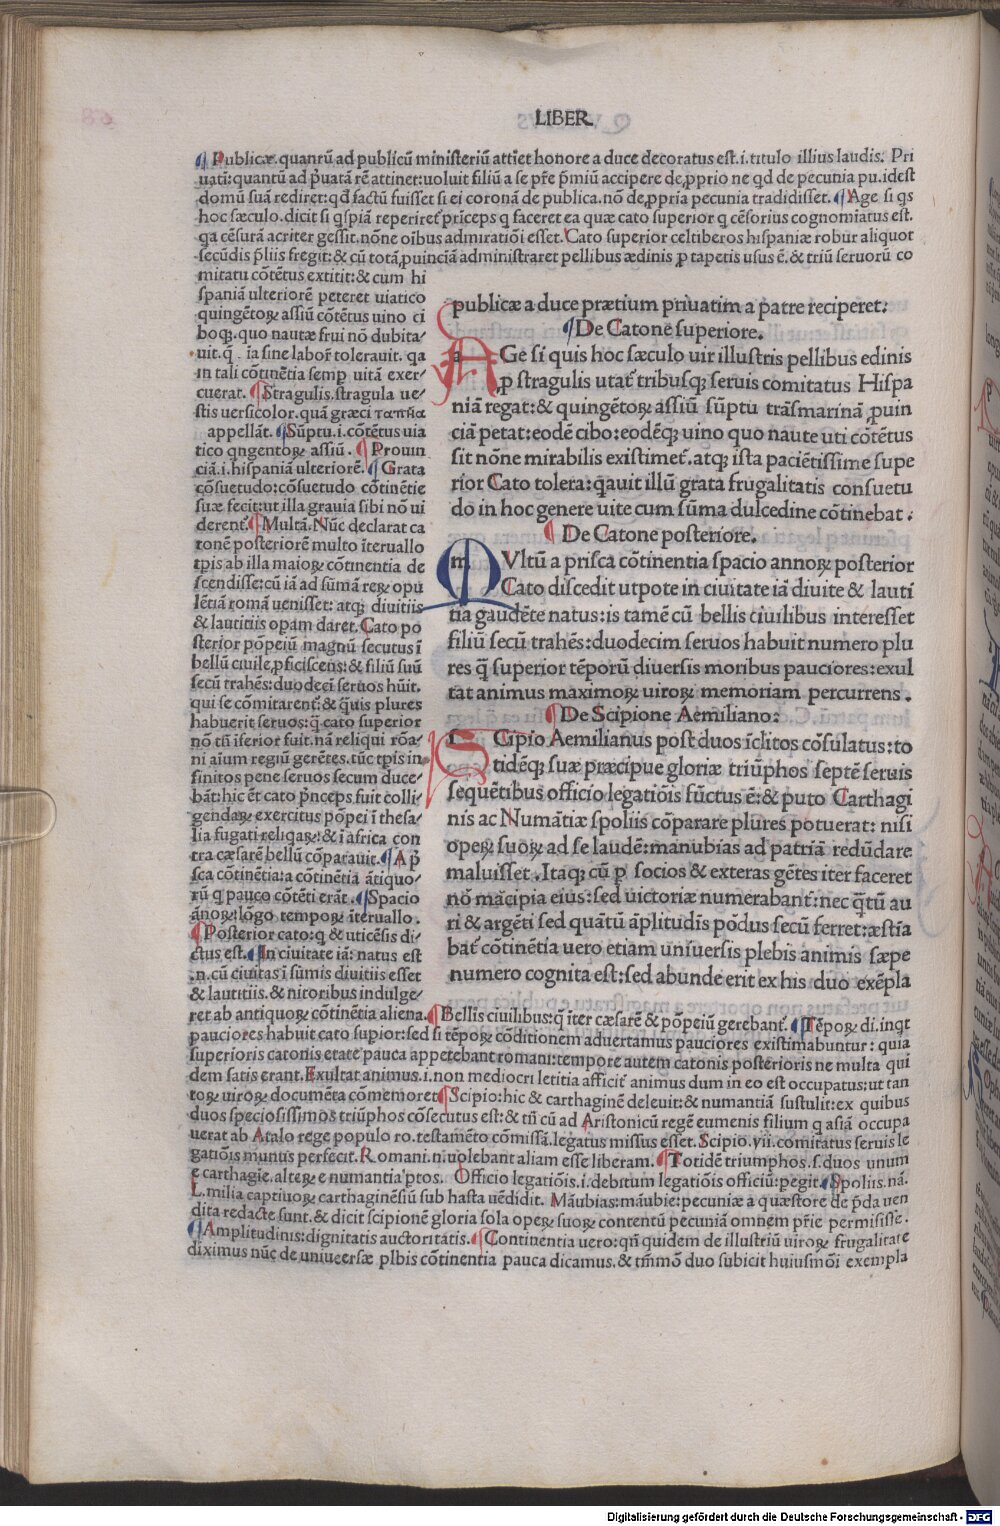 LIBER
¶Publicæ.quantũ ad publicũ ministeriũ attīet honore a duce decoratus est.i.titulo illius laudis. Pri
uatī:quantũ ad p̄uatã rē attinet:uoluit filiũ a se pr̄e p̄miũ accipere de ꝓprio ne qd de pecunia pu.idest
domũ suã rediret:qđ factũ fuisset si ei coronã de publica.nō de ꝓpria pecunia tradidisset.¶Age si qs
hoc sæculo.dicit si qspiã reperiret̄ p̄nceps q faceret ea quæ cato superior q cēsorius cognomīatus est.
qa cēsurã acriter gessit.nōne oībus admiratiōi esset.Cato superior celtiberos hispaniæ robur aliquot
secũdis p̄liis fregit:& cũ totã ꝓuinciã administraret pellibus ædinis ꝓ tapetis usus ē.& triũ seruorũ co
mitatu cōtētus extitit:& cum hi
spaniã ulteriorē peteret uiatico
quingētoꝝ assiũ cōtētus uino ci
boqꝫ.quo nautæ frui nō dubita/
uit.q̄ ia sine labor̄ tolerauit.qa
in tali cōtinētia semp̱ uitã exer/
cuerat.¶Stragulis.stragula ue/
stis uersicolor.quã græci ταπηια
appellãt.¶Sũptu.i.cōtētus uia
tico qngentoꝝ assiũ.¶Prouin
ciã.i.hispaniã ulteriorē.¶Grata
cōsuetudo:cōsuetudo cōtinētie
suæ fecit:ut illa grauia sibi nō ui
derent̄.¶Multã.Nũc declarat ca
tonē posteriorē multo īteruallo
tp̄is ab illa maioꝝ cōtinentia de
scendisse:cũ iã ad sũmã reꝝ opu
lētiã romã uenisset:atqꝫ diuitiis
& lautitiis opam daret.Cato po
sterior pōpeiũ magnũ secutus ī
bellũ ciuile ꝓficiscens:& filiũ suũ
secũ trahēs:duodecī seruos hũit.
qui se cōmitarent̄:& q̄uis plures
habuerit seruos:q̄ cato superior
nō tñ īferior fuit.nã reliqui rōa/
ni aīum regiũ gerētes.tũc tp̄is in
finitos pene seruos secum duce/
bãt:hic ēt cato p̄nceps fuit colli/
gendaꝝ exercitus pōpei ī thesa/
lia fugati reliqaꝝ:& ī africa con
tra cæsarē bellũ cōparauit.¶A p̄
sca cōtinētia:a cōtinētia ãtiquo/
rũ q pauco cōtēti erãt.¶Spacio
ãnoꝝ:lōgo tempoꝝ īteruallo.
¶Posterior cato:q & uticēsis di/
ctus est.¶In ciuitate iã: natus est
.n.cũ ciuitas ī sũmis diuitiis esset
& lautitiis.& nitoribus indulge/
ret ab antiquoꝝ cōtinētia aliena.
publicæ a duce prætium priuatim a patre reciperet:
¶De Catone superiore.
AGe si quis hoc sæculo uir illustris pellibus edinis
ꝓ stragulis utat̄ tribusqꝫ seruis comitatus Hispa
niã regat:& quingētoꝝ assiũ sũptu trãsmarinã ꝓuin
ciã petat:eodē cibo:eodēqꝫ uino quo naute uti cōtētus
sit nōne mirabilis existimet̄.atqꝫ ista paciētissime supe
rior Cato tolera:q̄auit illũ grata frugalitatis consuetu
do in hoc genere uite cum sũma dulcedine cōtinebat:
¶De Catone posteriore.
MVltũ a prisca cōtinentia spacio annoꝝ posterior
Cato discedit utpote in ciuitate iã diuite & lauti
tia gaudēte natus:is tamē cũ bellis ciuilibus interesset
filiũ secũ trahēs:duodecim seruos habuit numero plu
res q̄ superior tēporũ diuersis moribus pauciores:exul
tat animus maximoꝝ uiroꝝ memoriam percurrens.
¶De Scipione Aemiliano:
SCipio Aemilianus post duos īclitos cōsulatus:to
tidēqꝫ suæ præcipue gloriæ triũphos septē seruis
sequētibus officio legatiōis fũctus ē:& puto Carthagi
nis ac Numãtiæ spoliis cōparare plures potuerat: nisi
opeꝝ suoꝝ ad se laudē:manubias ad patriã redũdare
maluisset.Itaqꝫ cũ p̱ socios & exteras gētes iter faceret
nō mãcipia eius:sed uictoriæ numerabant̄:nec q̄tũ au
ri & argēti sed quãtũ ãplitudis pōdus secũ ferret:æstīa
bat̄ cōtinētia uero etiam uniuersis plebis animis sæpe
numero cognita est:sed abunde erit ex his duo exēpla
¶Bellis ciuilibus:q̄ īter cæsarē & pōpeiũ gerebant̄.¶Tēpoꝝ di.inqt
pauciores habuit cato supior:sed si tēpoꝝ cōditionem aduertamus pauciores existimabuntur: quia
superioris catonis etate pauca appetebant romani:tempore autem catonis posterioris ne multa qui
dem satis erant.Exultat animus.i.non mediocri letitia afficit̄ animus dum in eo est occupatus:ut tan
toꝝ uiroꝝ documēta cōmemoret.¶Scipio:hic & carthaginē deleuit:& numantiã sustulit:ex quibus
duos speciosissimos triũphos cōsecutus est:& tñ cũ ad Aristonicũ regē eumenis filium q asiã occupa
uerat ab Atalo rege populo ro.testamēto cōmissã.legatus missus esset.Scipio.vii.comitatus seruis le
gatiōis munus perfecit.Romani.n.uolebant aliam esse liberam.¶Totidē triumphos.s.duos unum
e carthagie.alteꝝ e numantia p̄tos. Officio legatiōis.i.debitum legatiōis officiũ:pegit.¶Spoliis.nã.
L.milia captiuoꝝ carthaginēsiũ sub hasta uēdidit. Mãubias:mãubie:pecuniæ a quæstore de p̄da uen
dita redacte sunt.& dicit scipionē gloria sola opeꝝ suoꝝ contentũ pecuniã omnem pr̄ie permisisse.
¶Amplitudinis:dignitatis auctoritatis.¶Continentia uero:qñ quidem de illustriũ uiroꝝ frugalitate
diximus nũc de uniueersæ plbis cōtinentia pauca dicamus.& tm̄mō duo subicit huiusmōi exempla
Digitalisierung gefördert durch die Deutsche Forschungsgemeinschaft - DFG